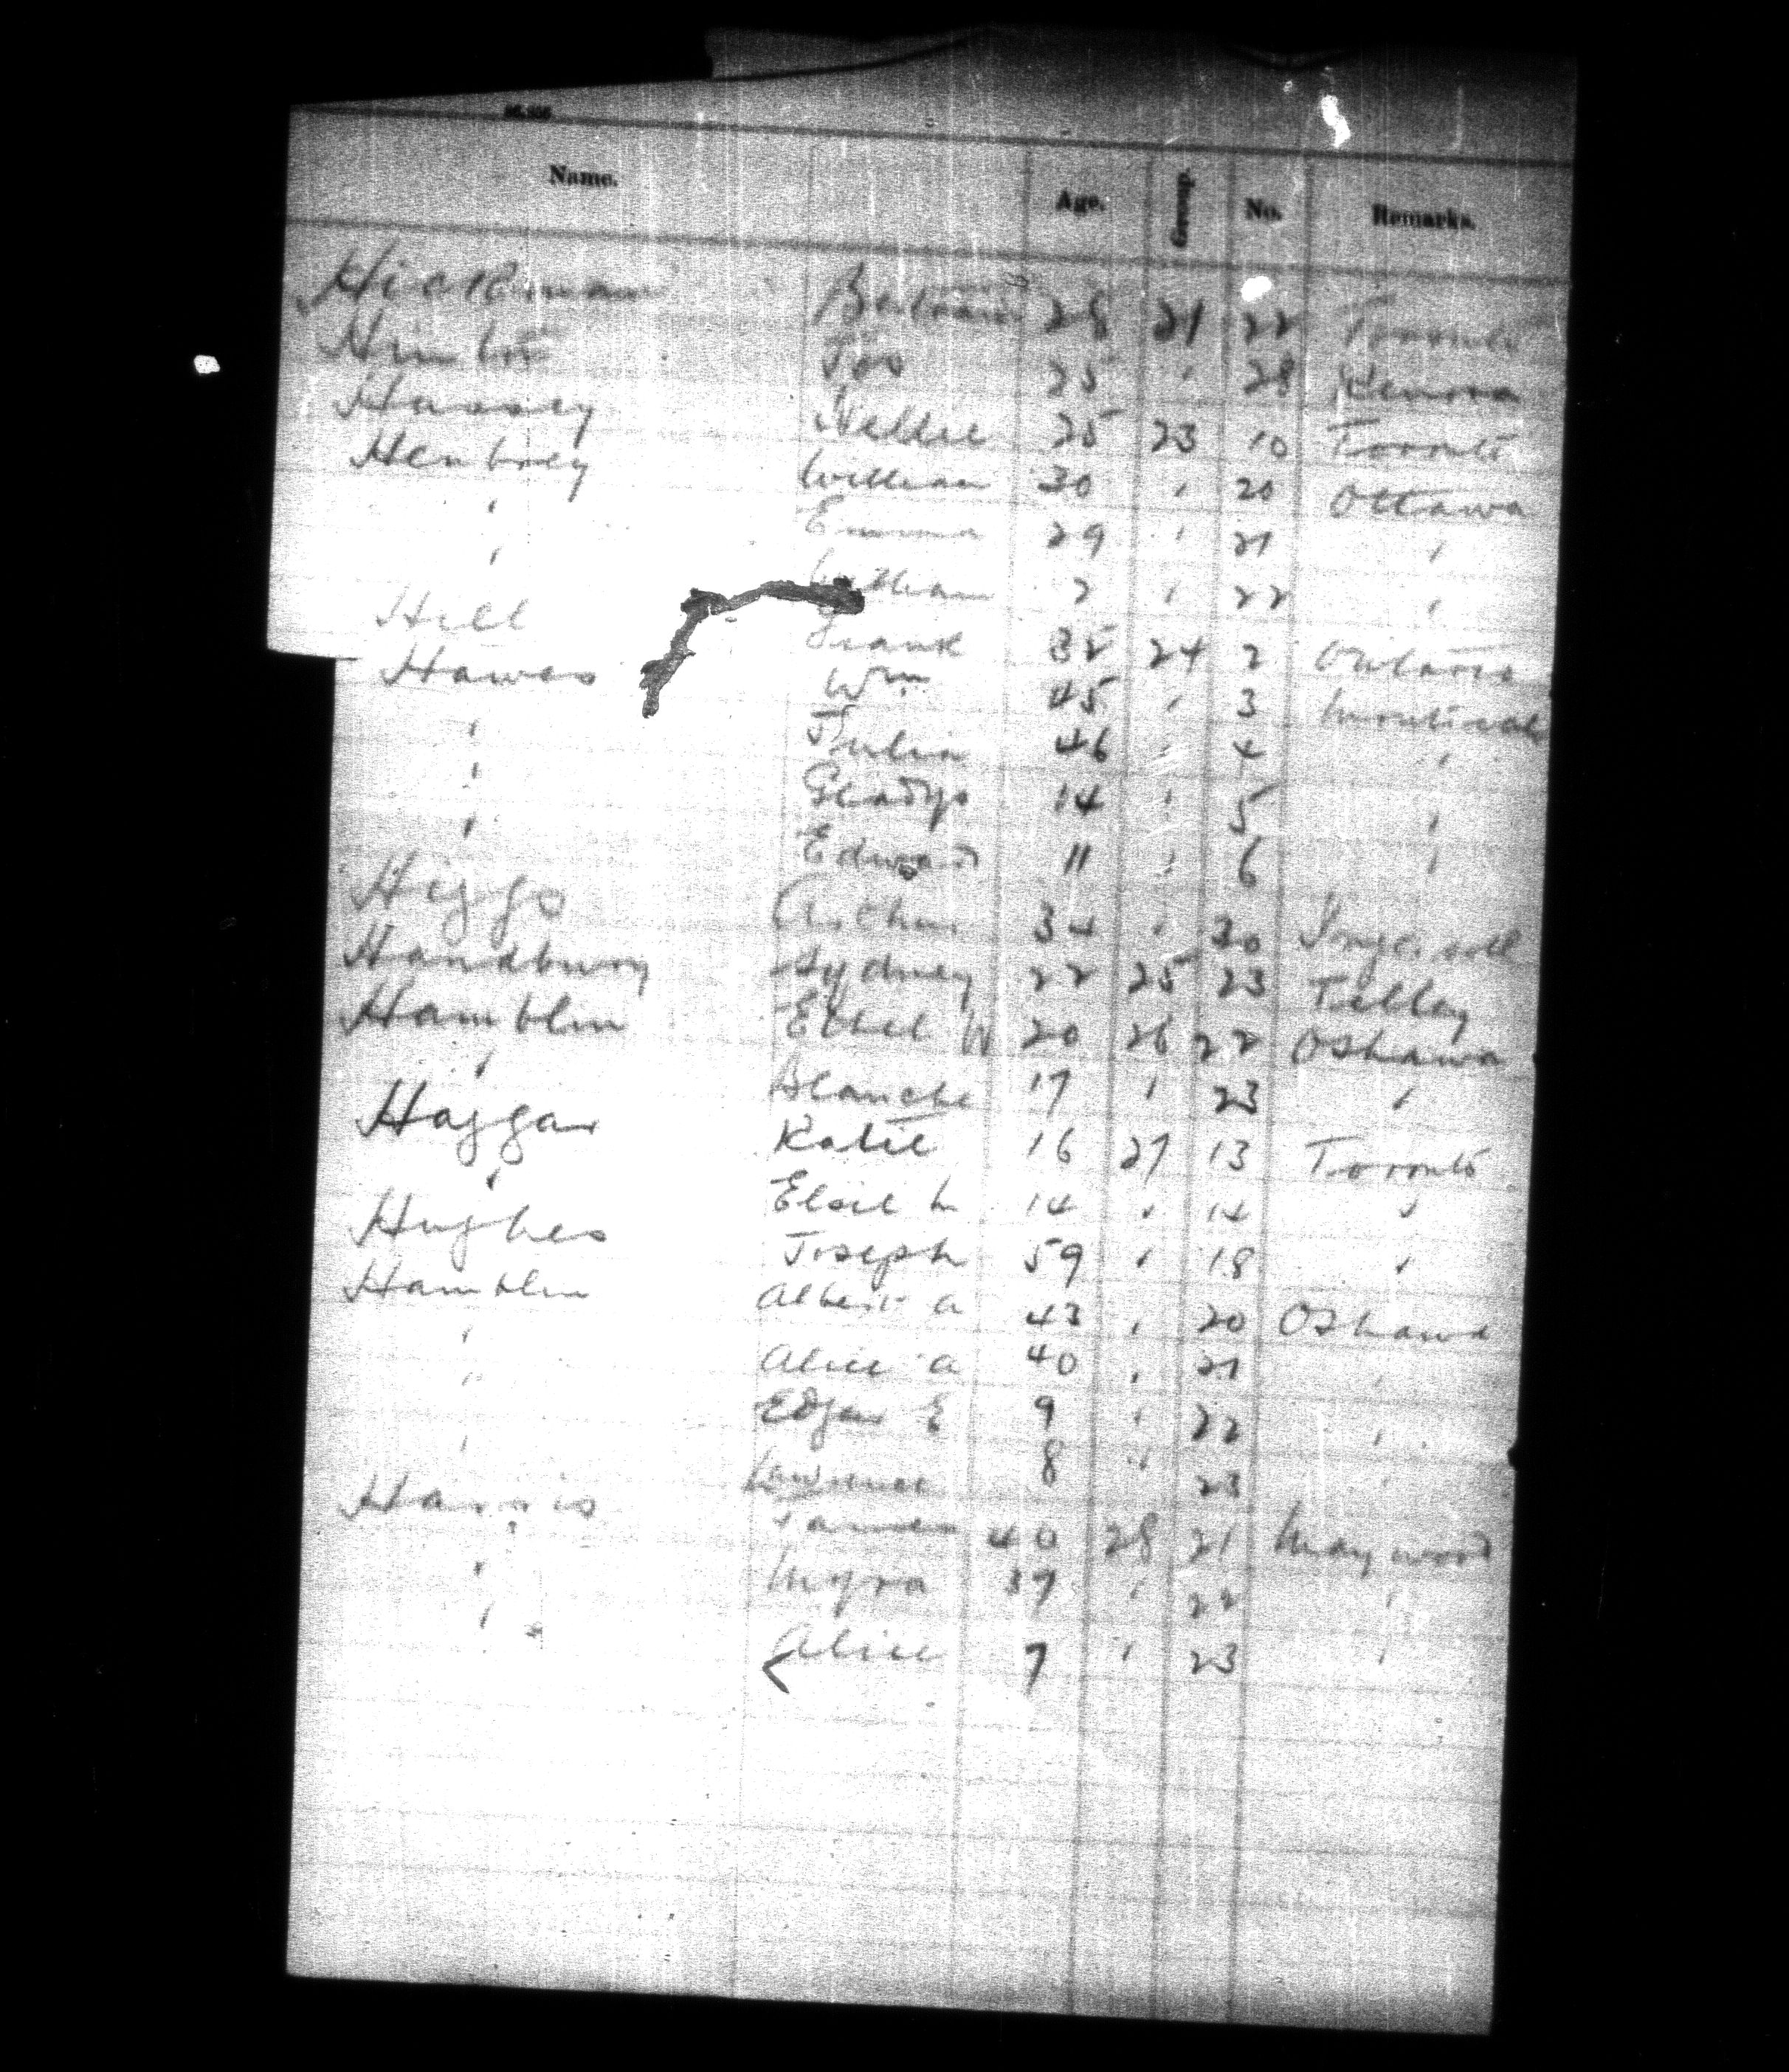 Name. Age. Group. No. Remarks.
Hickman 28 21 22 Toronto
Jos 25 " 28 Kenora
Hussey Nellie 25 23 10 Toronto
Henbrey William 30 " 20 Ottawa
" Emma 29 " 21 "
" William 2 " 22 "
Hill Frank 32 24 2 Ontario
Hawes Wm 45 " 3 Montreal
" Julia 46 " 4 "
" Gladys 14 " 5 "
" Edward 11 " 6 "
Higgs Arthur 34 " 30 Ingersoll
Handbury Sydney 22 25 23
Hamblin Ethel W 20 26 22 Oshawa
" Blanche 17 " 23 "
Haggar Katie 16 27 13 Toronto
" Elsie M 14 " 14 "
Hughes Joseph 59 " 18 "
Hamblin Albert A 43 " 20 Oshawa
" Alice A 40 " 21 "
" Edgar E 9 " 22 "
" Lawrence 8 " 23 "
Harris James 40 28 21 Maywood
" Myra 37 " 22 "
" Alice 7 " 23 "